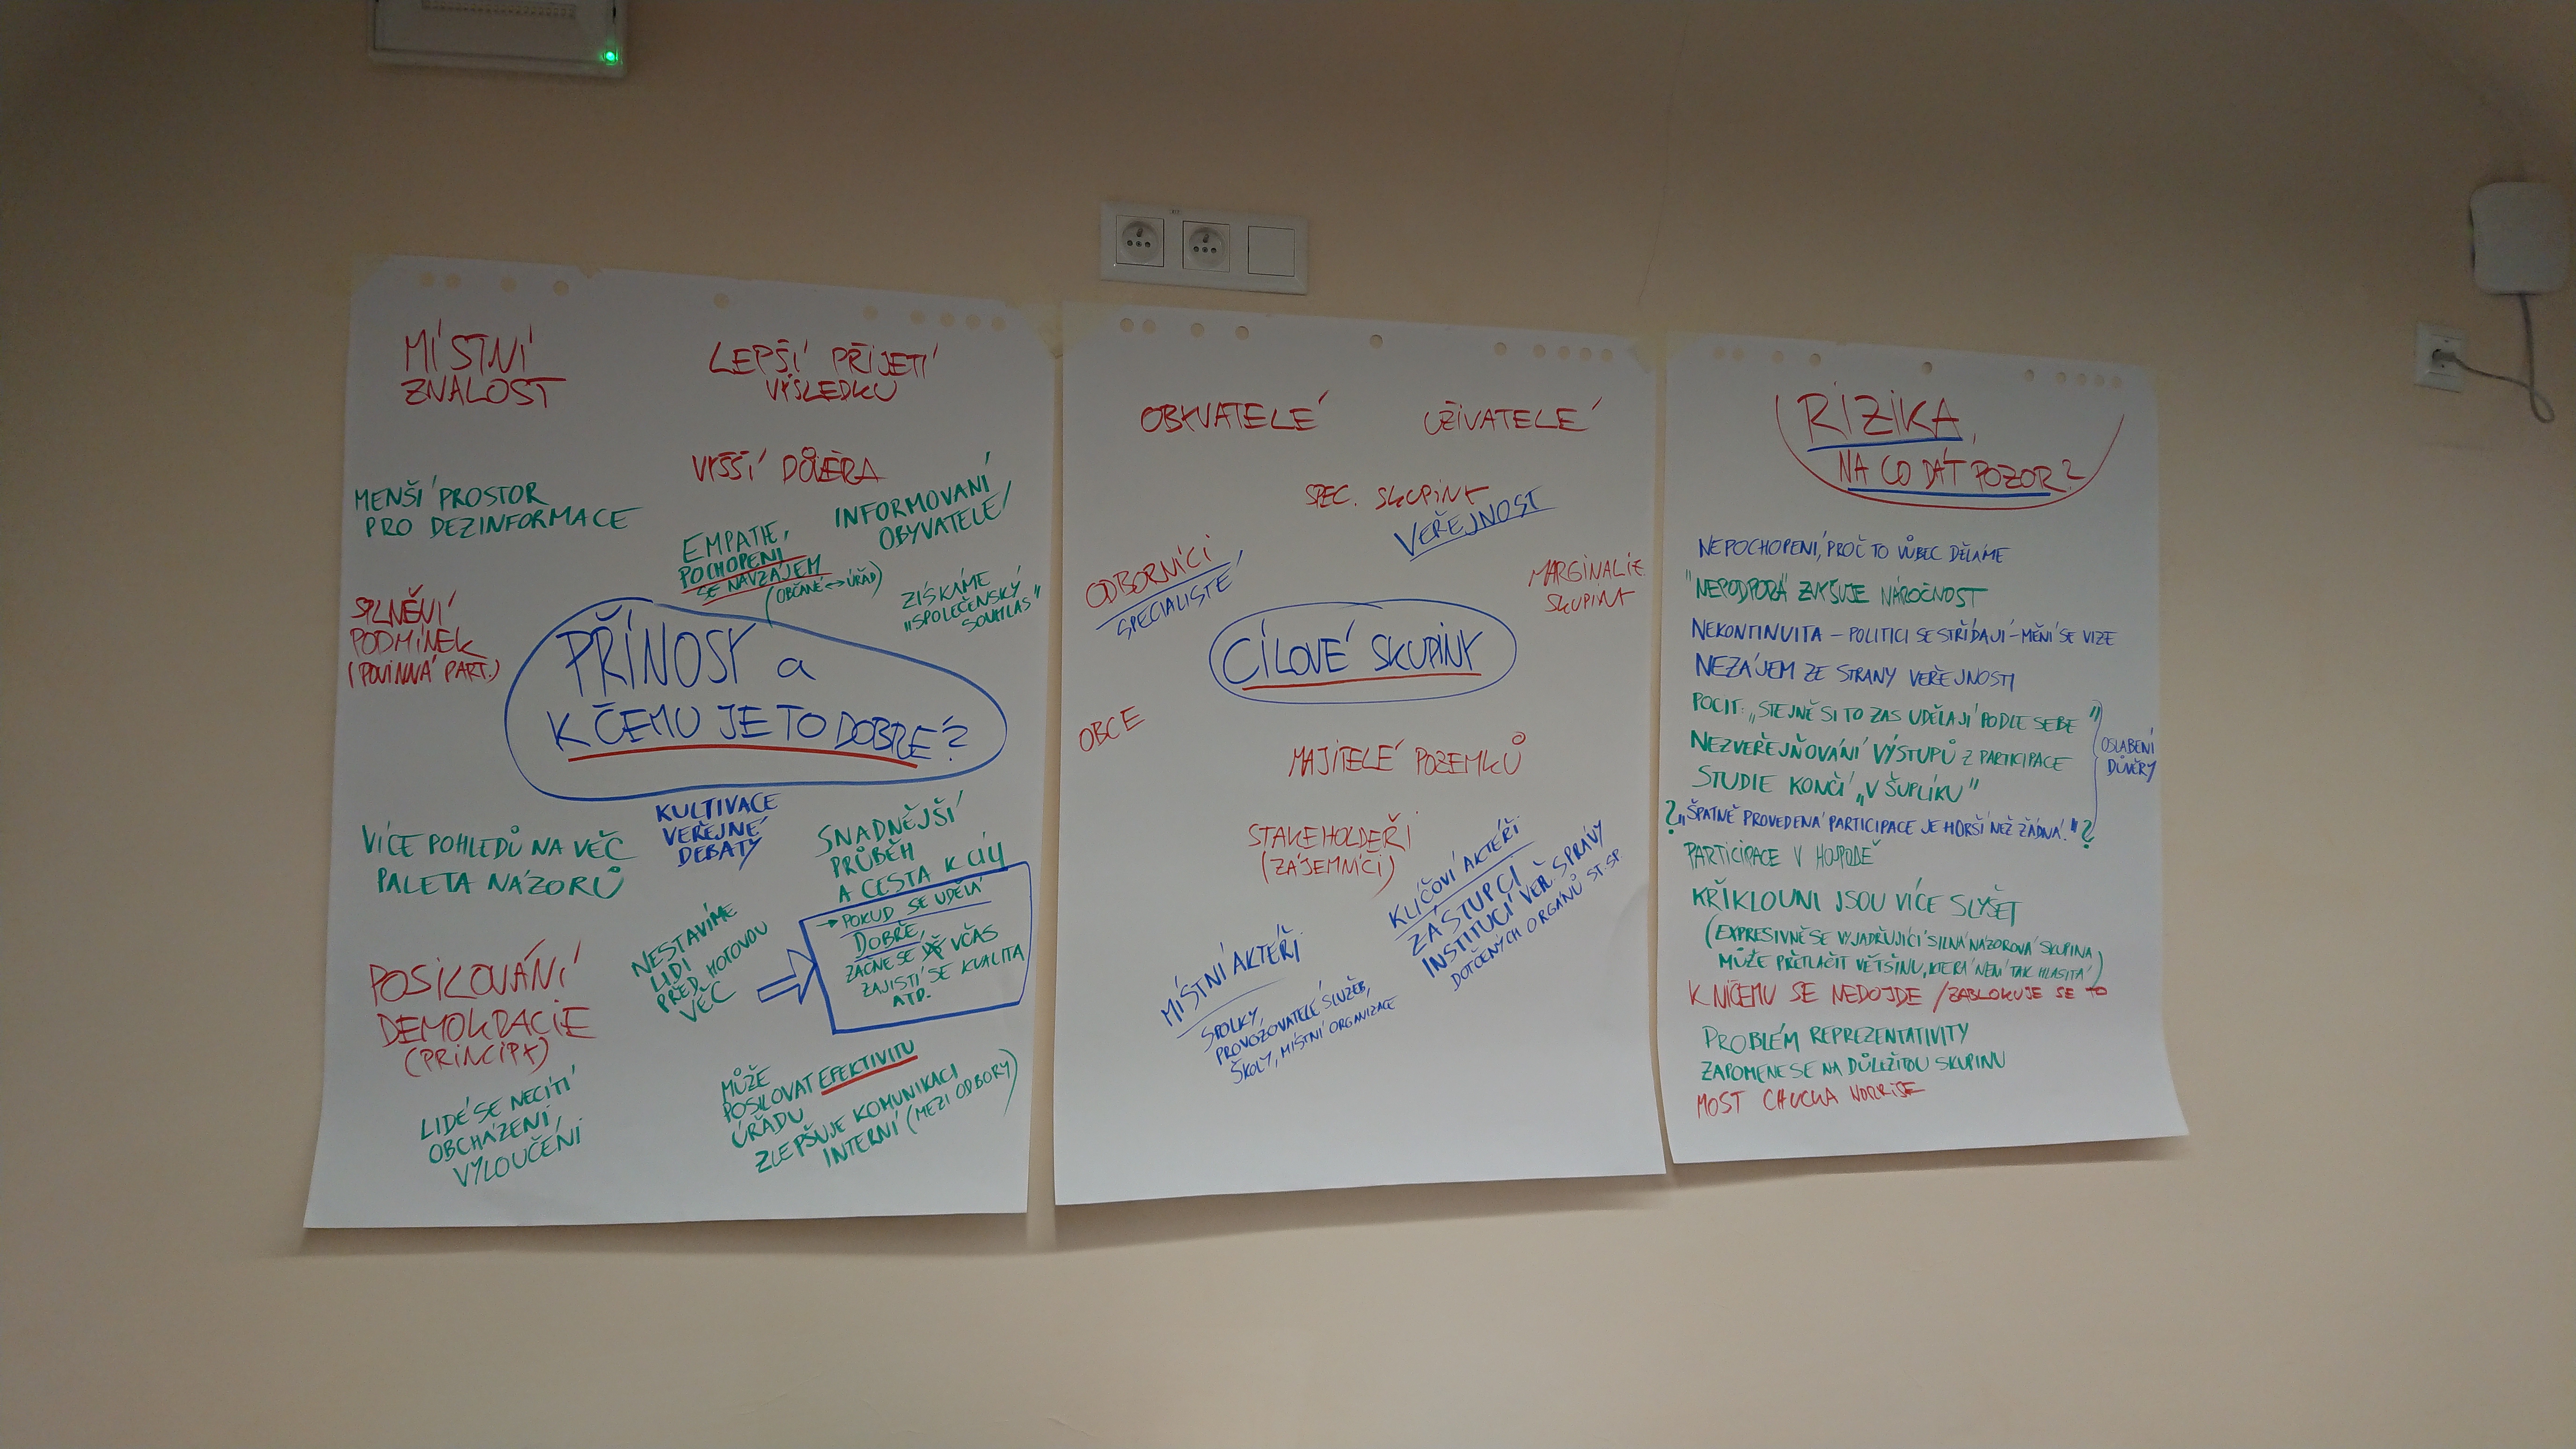 MÍSTNÍ
ZNALOST
LEPŠÍ PŘIJETÍ
VÝSLEDKU
VYŠŠÍ DŮVĚRA
MENŠÍ PROSTOR
PRO DEZINFORMACE
EMPATIE,
POCHOPENÍ
SE NAVZÁJEM
(OBČANÉ ↔ ÚŘAD)
INFORMOVANÍ
OBYVATELÉ
ZÍSKÁME
„SPOLEČENSKÝ
SOUHLAS"
SPLNĚNÍ
PODMÍNEK
(POVINNÁ PART.)
PŘÍNOSY a
K ČEMU JE TO DOBRÉ?
KULTIVACE
VEŘEJNÉ
DEBATY
VÍCE POHLEDŮ NA VĚC
PALETA NÁZORŮ
SNADNĚJŠÍ
PRŮBĚH
A CESTA K CÍLI
→ POKUD SE UDĚLÁ
DOBŘE,
ZAČNE SE VČAS
ZAJISTÍ SE KVALITA
ATD.
NESTAVÍME
LIDI
PŘED HOTOVOU
VĚC
POSILOVÁNÍ
DEMOKRACIE
(PRINCIPY)
LIDÉ SE NECÍTÍ
OBCHÁZENÍ,
VYLOUČENÍ
MŮŽE
POSILOVAT EFEKTIVITU
ÚŘADU
ZLEPŠUJE KOMUNIKACI
INTERNÍ (MEZI ODBORY)
OBYVATELÉ
UŽIVATELÉ
SPEC. SKUPINY
VEŘEJNOST
ODBORNÍCI
SPECIALISTÉ
MARGINALIZ.
SKUPINY
CÍLOVÉ SKUPINY
OBCE
MAJITELÉ POZEMKŮ
STAKEHOLDEŘI
(ZÁJEMNÍCI)
KLÍČOVÍ AKTÉŘI
ZÁSTUPCI
INSTITUCÍ VEŘ. SPRÁVY
DOTČENÝCH ORGÁNŮ ST. SP.
MÍSTNÍ AKTÉŘI
SPOLKY,
PROVOZOVATELÉ SLUŽEB,
ŠKOLY, MÍSTNÍ ORGANIZACE
RIZIKA,
NA CO DÁT POZOR?
NEPOCHOPENÍ, PROČ TO VŮBEC DĚLÁME
"NEPODPORA" ZVYŠUJE NÁROČNOST
NEKONTINUITA – POLITICI SE STŘÍDAJÍ – MĚNÍ SE VIZE
NEZÁJEM ZE STRANY VEŘEJNOSTI
POCIT: „STEJNĚ SI TO ZAS UDĚLAJÍ PODLE SEBE"
NEZVEŘEJŇOVÁNÍ VÝSTUPŮ Z PARTICIPACE
STUDIE KONČÍ „V ŠUPLÍKU"
OSLABENÍ
DŮVĚRY
? „ŠPATNĚ PROVEDENÁ PARTICIPACE JE HORŠÍ NEŽ ŽÁDNÁ." ?
PARTICIPACE V HOSPODĚ
KŘIKLOUNI JSOU VÍCE SLYŠET
(EXPRESIVNĚ SE VYJADŘUJÍCÍ SILNÁ NÁZOROVÁ SKUPINA
MŮŽE PŘETLAČIT VĚTŠINU, KTERÁ NENÍ TAK HLASITÁ)
K NIČEMU SE NEDOJDE / ZABLOKUJE SE TO
PROBLÉM REPREZENTATIVITY
ZAPOMENE SE NA DŮLEŽITOU SKUPINU
MOST CHUCKA NORRISE